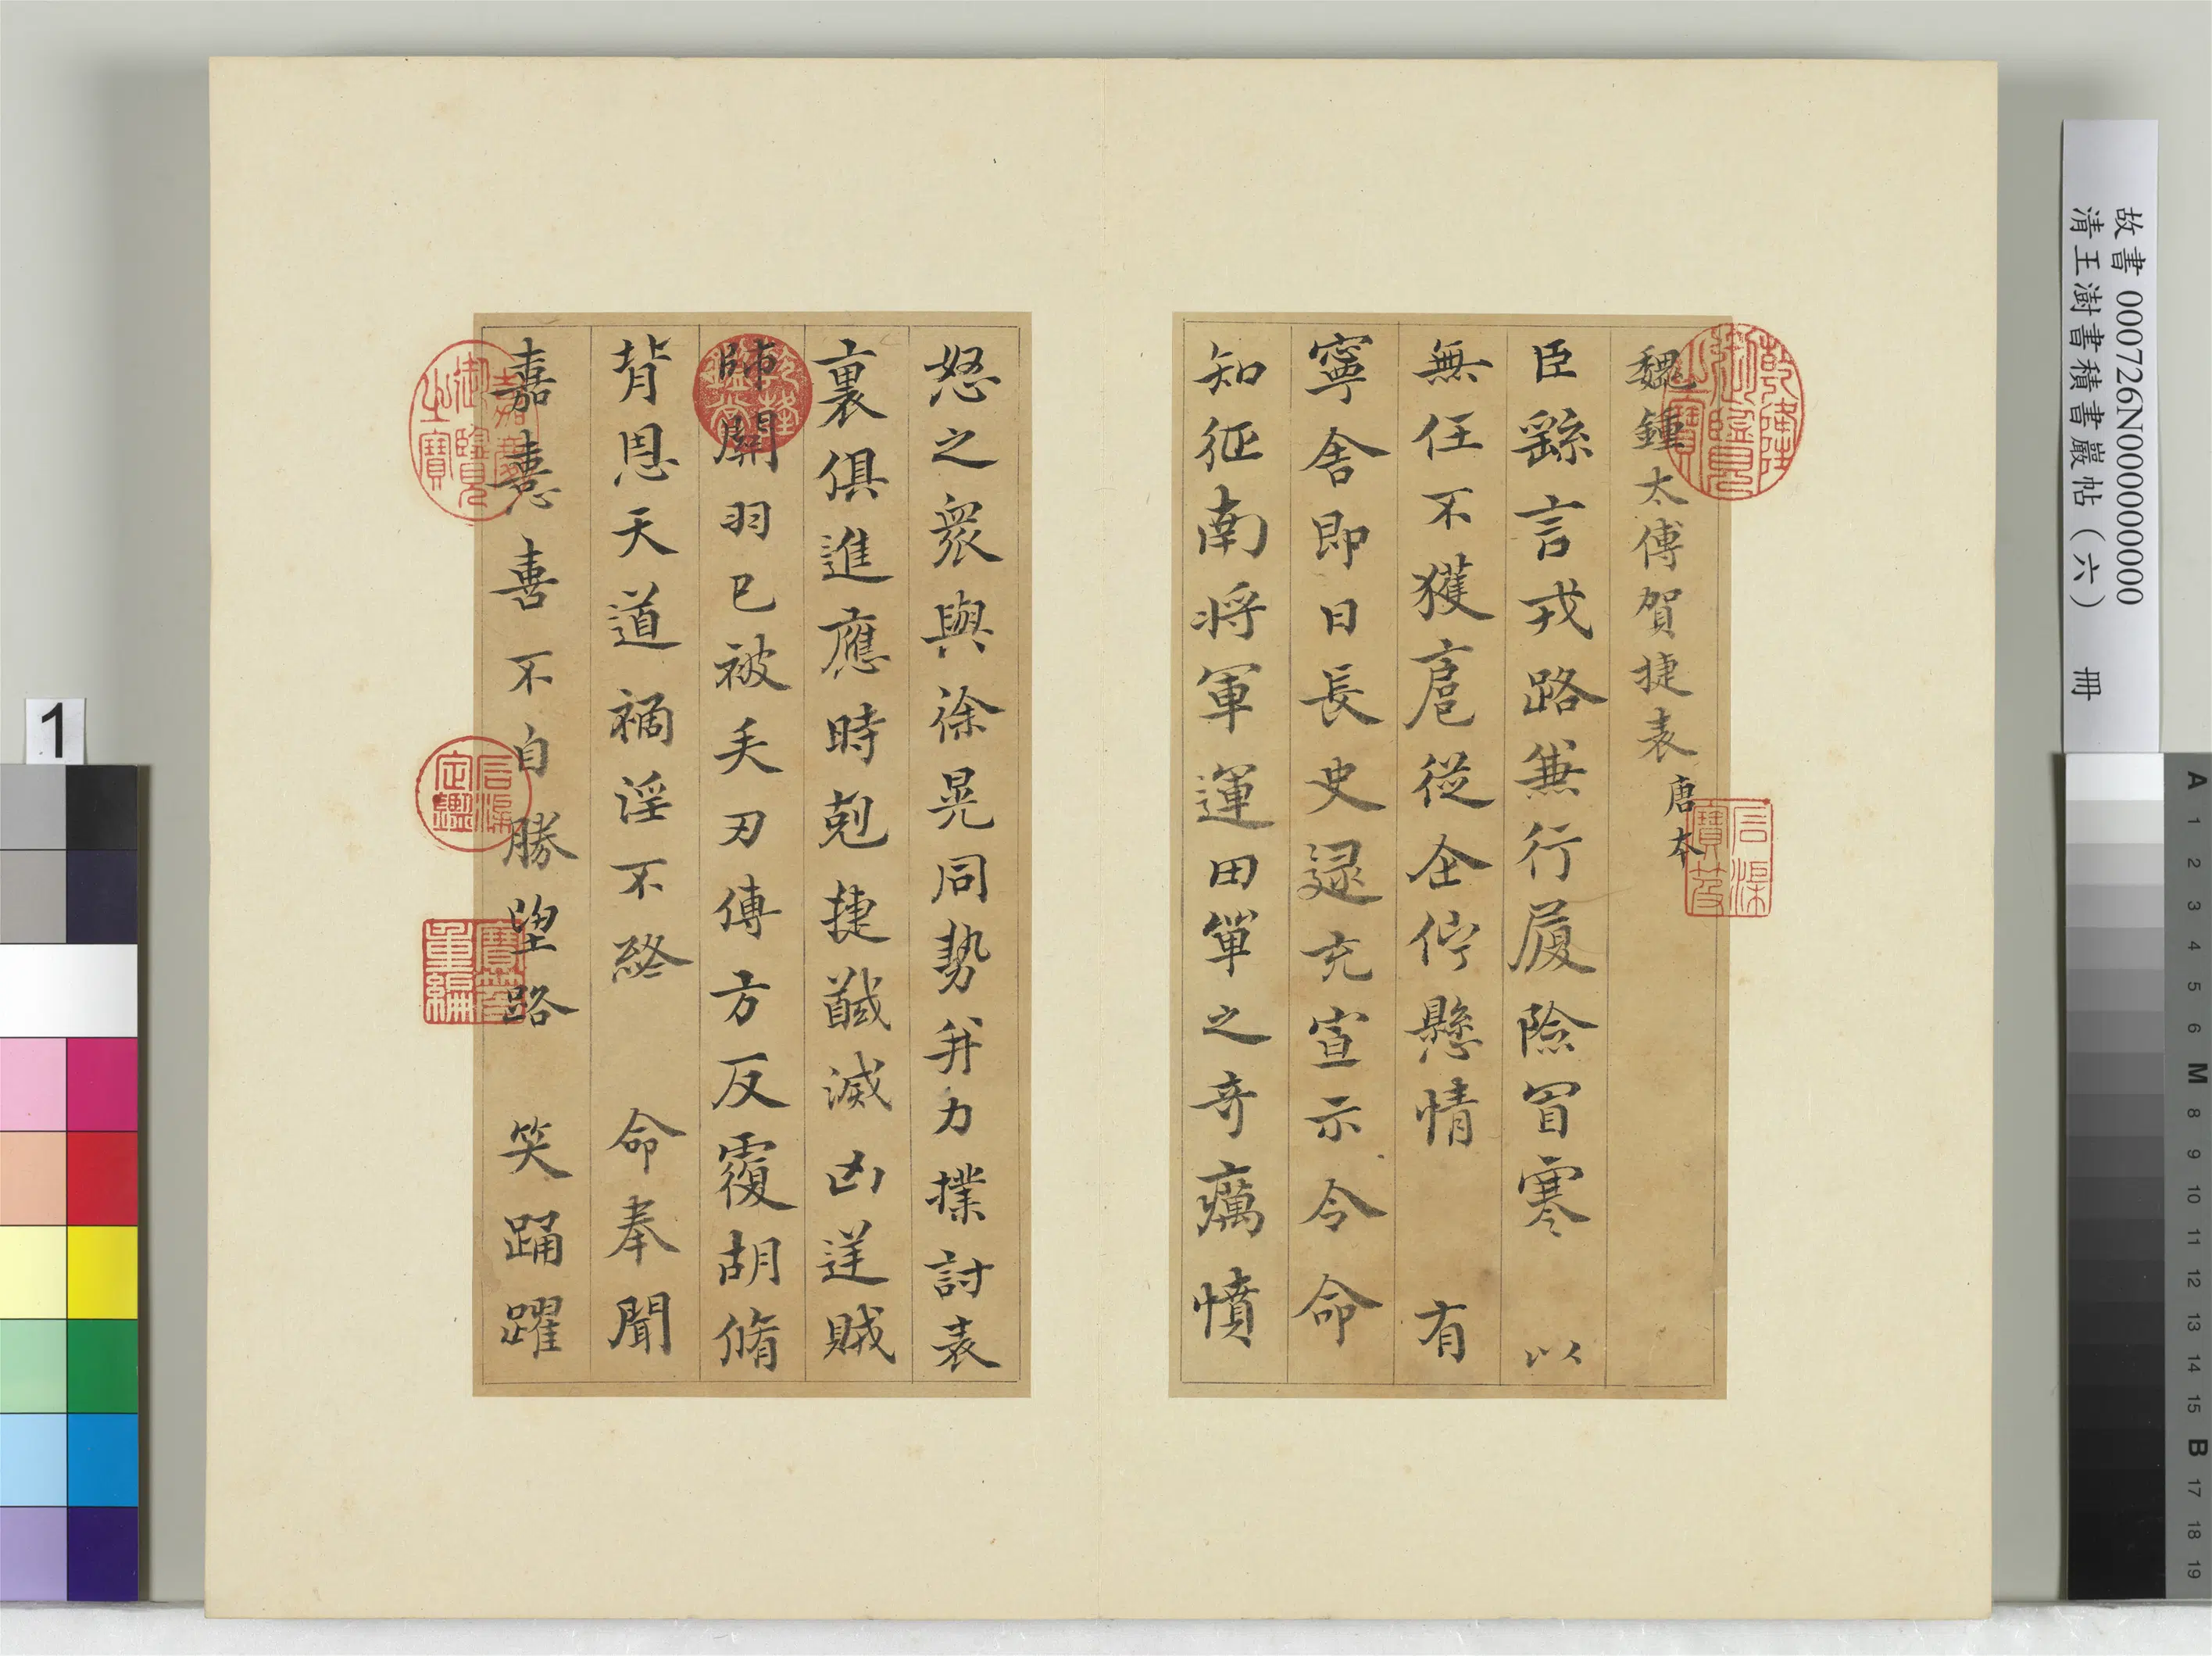 故書 000726N000000000
清王澍書積書巖帖（六）　冊
魏鍾太傅賀捷表 唐本
臣繇言戎路兼行履險冒寒　以
無任不獲扈從企佇懸情　有
寧舍即日長史逯充宣示令命
知征南將軍運田單之奇厲憤
怒之衆與徐晃同勢并力撲討表
裏俱進應時剋捷馘滅凶逆賊
帥關羽已被矢刃傅方反覆胡脩
背恩天道禍淫不終　命奉聞
嘉憙喜不自勝望路　笑踊躍
乾隆御覽之寶
石渠寶笈
乾隆鑑賞
嘉慶御覽之寶
石渠定鑑
寶笈重編
1
A 1 2 3 4 5 6 M 8 9 10 11 12 13 14 15 B 17 18 19